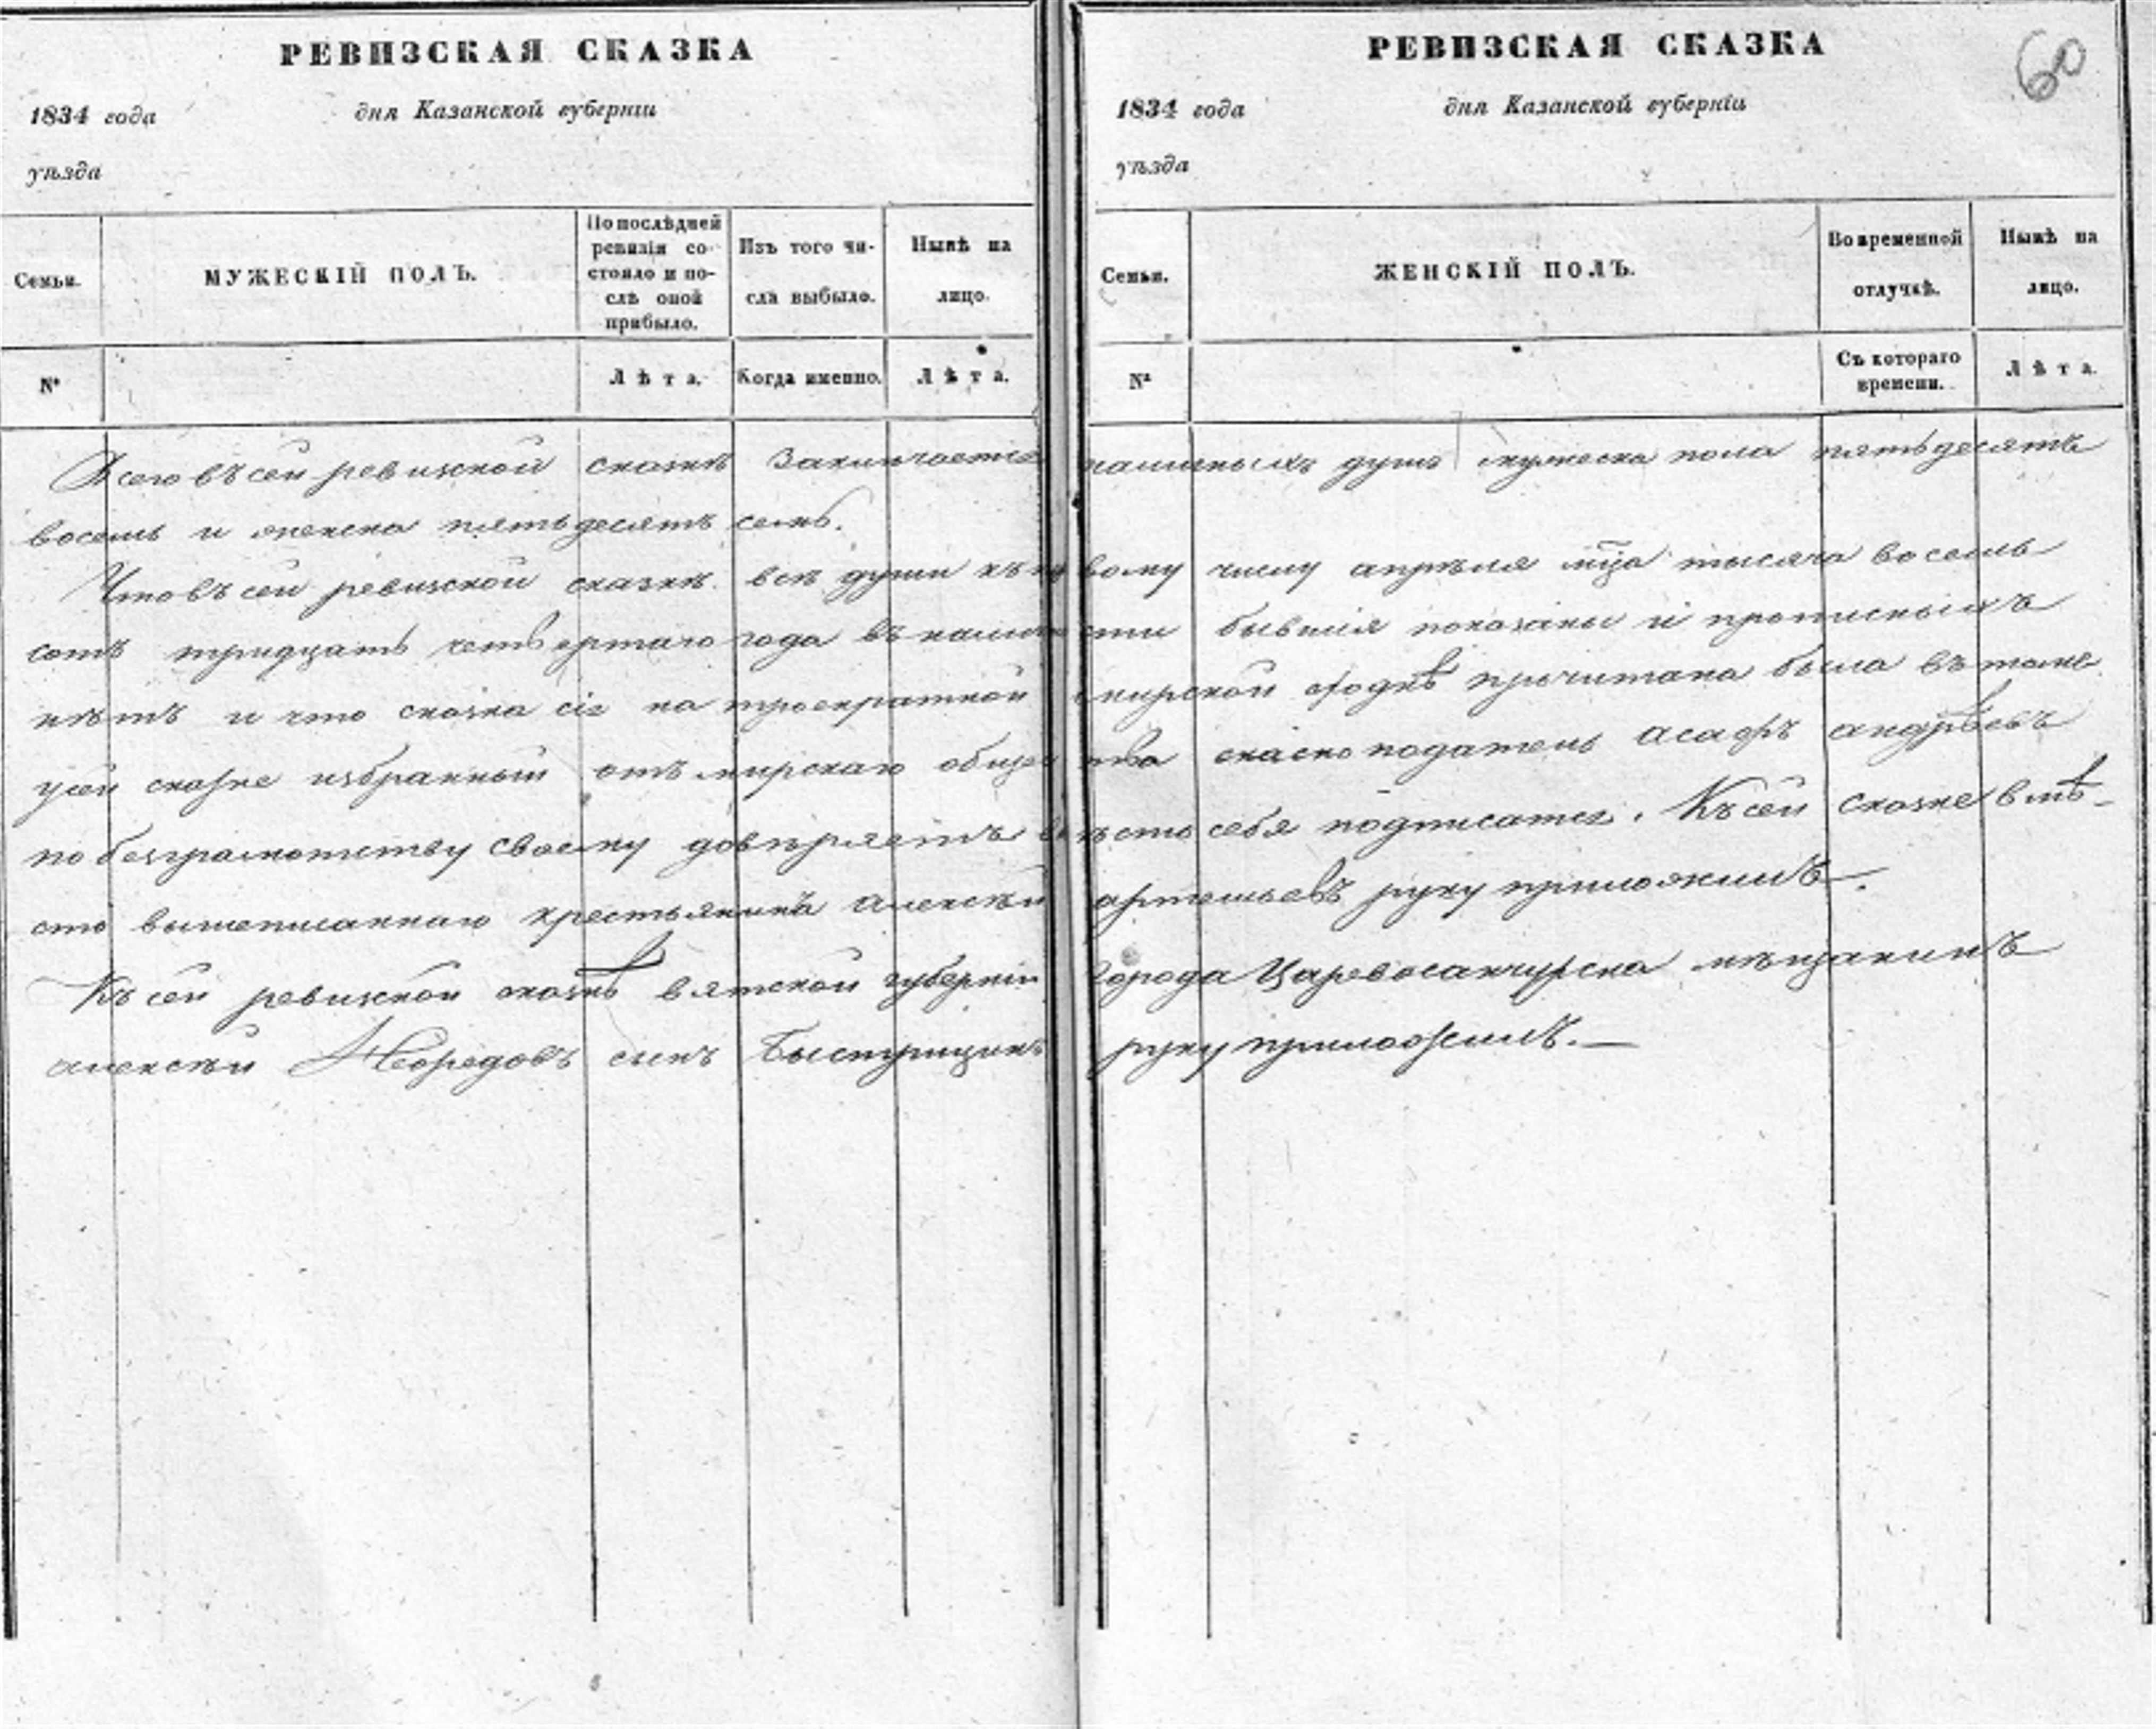 РЕВИЗСКАЯ СКАЗКА
1834 года дня Казанской губерніи
уѣзда
Семьи.
МУЖЕСКІЙ ПОЛЪ.
По послѣдней
ревизія со-
стояло и по-
слѣ оной
прибыло.
Изъ того чи-
сла выбыло.
Нынѣ на
лицо.
№
Лѣта.
Когда именно.
Лѣта.
РЕВИЗСКАЯ СКАЗКА
60
1834 года дня Казанской губерніи
уѣзда
Семьи.
ЖЕНСКІЙ ПОЛЪ.
Во временной
отлучкѣ.
Нынѣ на
лицо.
№
Съ котораго
времени.
Лѣта.
Всего въ сеи ревизской сказкѣ Заключается наличныхъ душъ мужеска пола пятьдесятъ
восемь и женска пятьдесятъ семь.
Что въ сеи ревизской сказкѣ всѣ души къ вому числу апрѣля мца тысяча восемь
сотъ тридцать четвертаго года въ наличности бывшія показаны и прописныхъ
нѣтъ и что сказка сія на троекратной мирской сходкѣ прочитана была въ томъ
сказке избранный отъ мирскаго общества сказкоподатель асафъ андрѣевъ
по безграмотству своему довѣряетъ вмѣсто себя подписатся. Къ сеи сказке вмѣ-
сто вышеписаннаго крестьянина алексѣи артемьевъ руку приложилъ.
Къ сеи ревизской сказкѣ вятской губерніи города Царевосанчурска мѣщанинъ
алексѣи сынъ Быстрицкинъ руку приложилъ.—